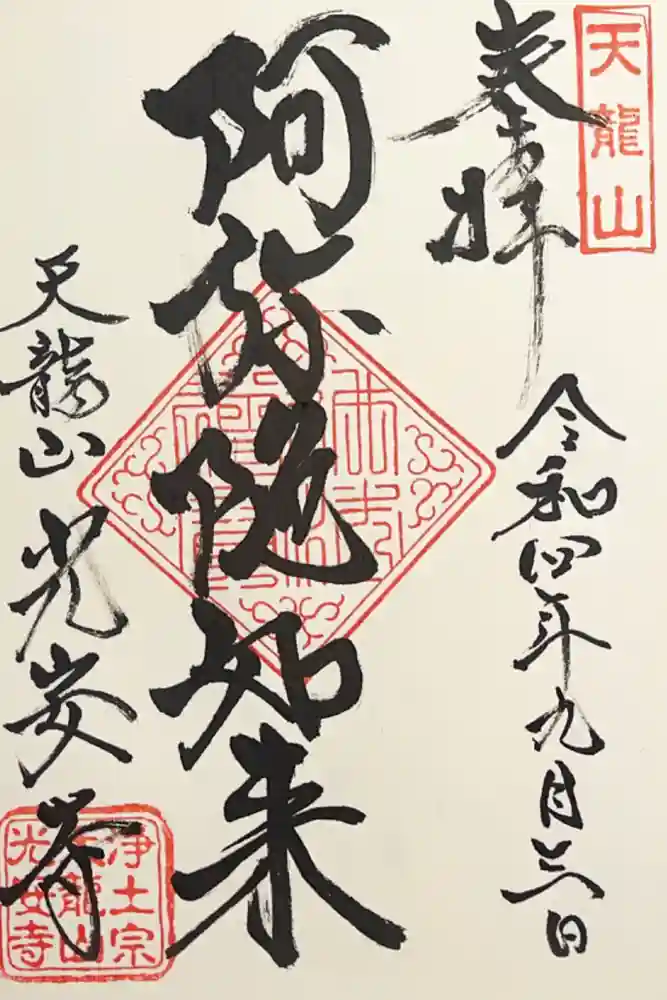 天龍山
奉拝
令和四年九月六日
阿弥陀如来
天龍山光安寺
浄土宗
天龍山
光安寺